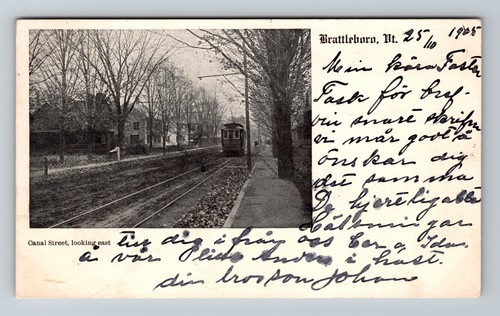 Brattleboro, Vt. 25/10 1905
Min kära Faster
Tack för bref-
vin snart skrifva
vi mår godt å
önskar dig
det samma
De hjertligaste
Hälsningar
Canal Street, looking east
till dig i från oss
å vår lilla i höst.
din brorson Johan